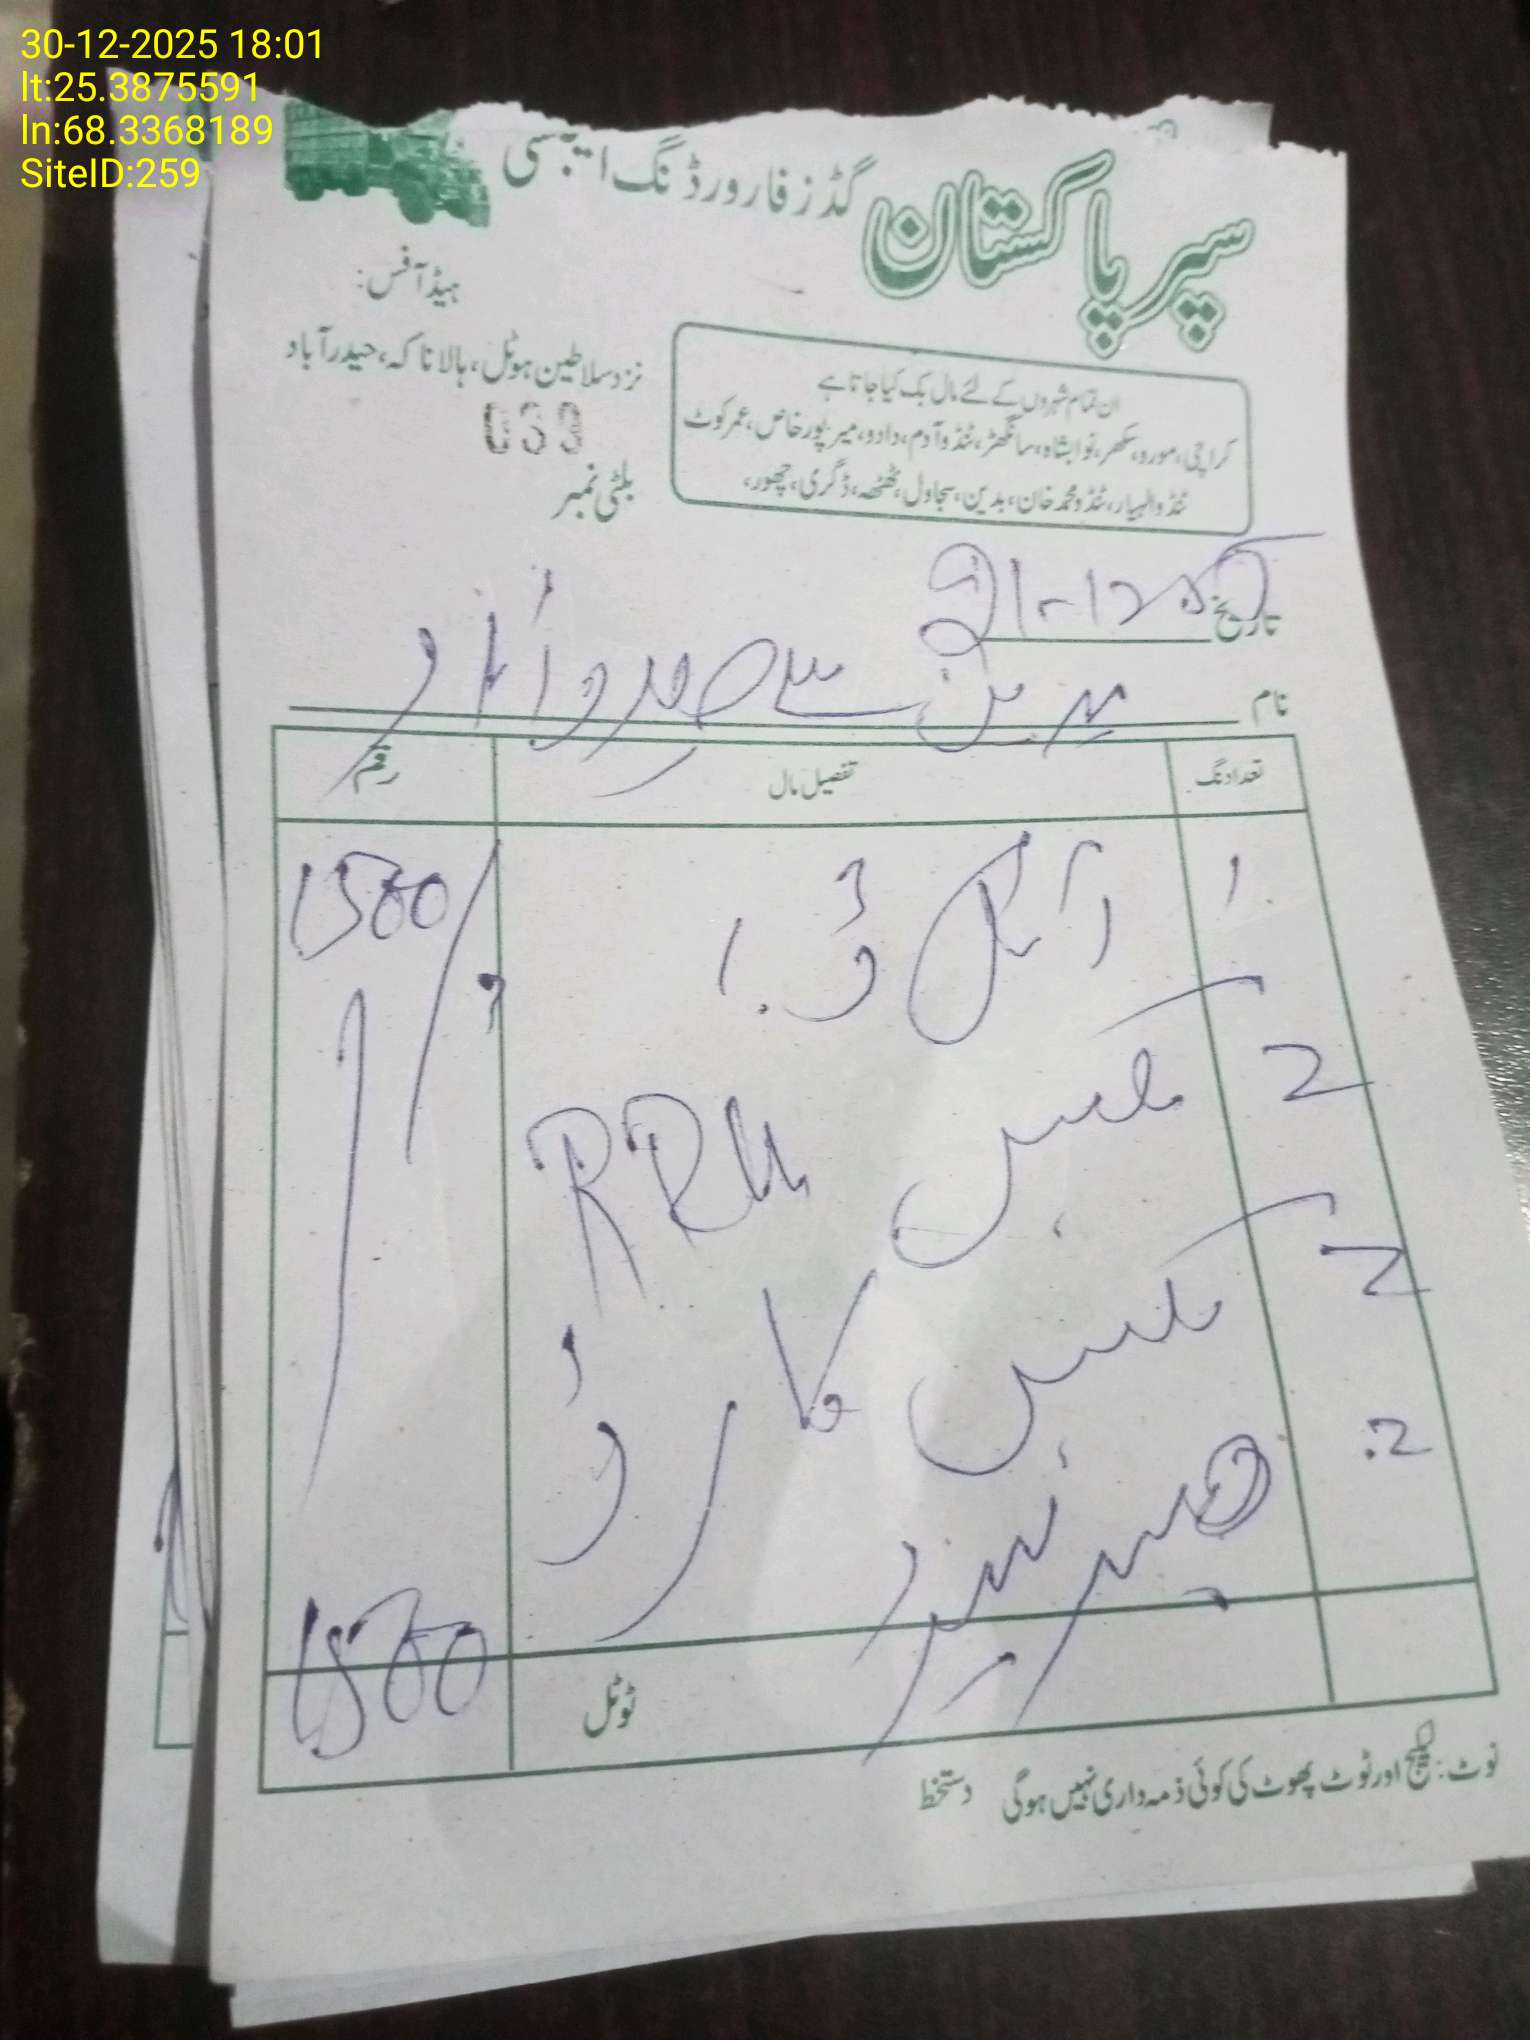 30-12-2025 18:01
lt:25.3875591
ln:68.3368189
SiteID:259
سپر پاکستان گڈز فارورڈنگ ایجنسی
ہیڈ آفس:
نزد سلاطین ہوٹل، ہالا ناکہ، حیدرآباد
033
بلٹی نمبر
ان تمام شہروں کے لئے مال بک کیا جاتا ہے
کراچی، مورو، سکھر، نوابشاہ، سانگھڑ، ٹنڈوآدم، دادو، میرپورخاص، عمرکوٹ
ٹنڈوالہیار، ٹنڈو محمد خان، بدین، سجاول، ٹھٹھہ، ڈگری، چھور،
تاریخ 21-12-25
نام بدین سے حیدرآباد
تعداد نگ تفصیل مال رقم
1 آئل ڈبا 1500/
2 بکس RRU
2 بکس کارڈ
2
ٹوٹل 1500
نوٹ: لیکج اور ٹوٹ پھوٹ کی کوئی ذمہ داری نہیں ہوگی دستخط